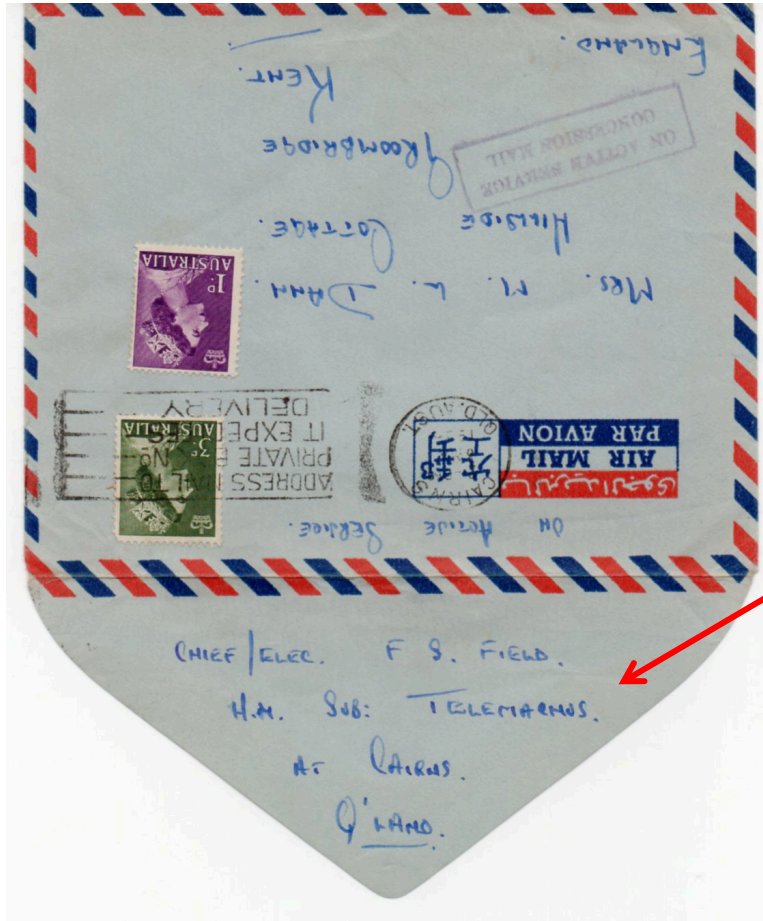 ON ACTIVE SERVICE.
بالبريد الجوي
AIR MAIL
PAR AVION
CAIRNS
QLD. AUST.
ADDRESS MAIL TO
PRIVATE No
IT EXPEDITES
DELIVERY
3D
AUSTRALIA
1D
AUSTRALIA
MRS. M. L. DANN.
HILLSIDE COTTAGE.
GROOMBRIDGE
KENT.
ENGLAND.
ON ACTIVE SERVICE
CONCESSION MAIL
CHIEF/ELEC. F S. FIELD.
H.M. SUB: TELEMACHUS.
AT CAIRNS.
Q'LAND.